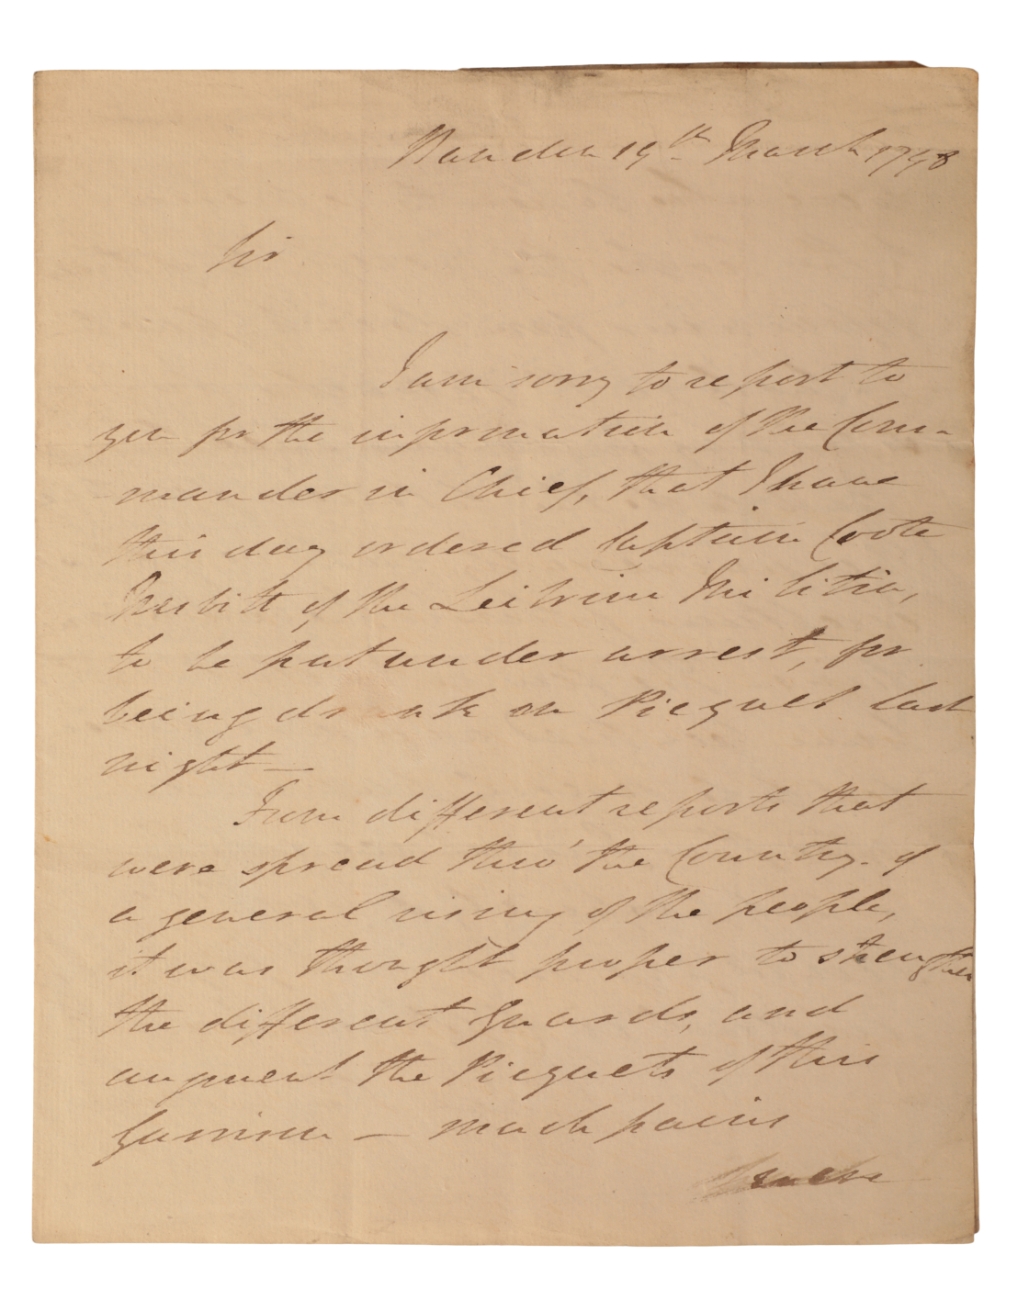 Bandon 19th March 1798
Sir
I am sorry to report to
you for the information of the Com-
mander in Chief, that I have
this day ordered Captain Coote
Nesbitt of the Leitrim Militia,
to be put under arrest, for
being drunk on Picquet last
night —
From different reports that
were spread thro' the Country of
a general rising of the people,
it was thought proper to strengthen
the different Guards, and
augment the Picquets of this
Garrison — much pains